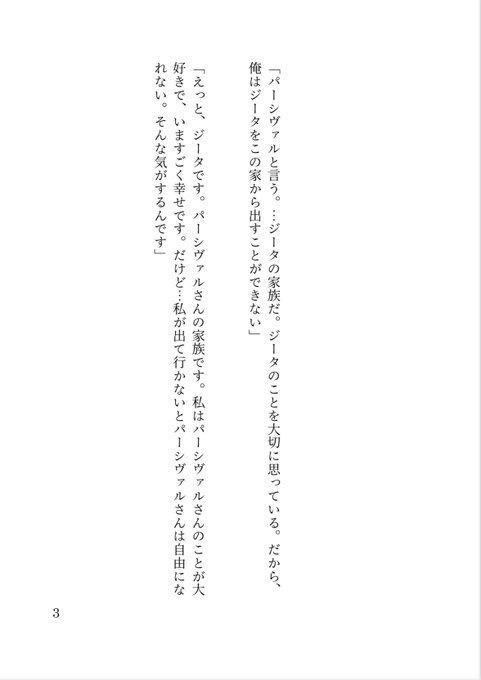 「パーシヴァルと言う。…ジータの家族だ。ジータのことを大切に思っている。だから、
俺はジータをこの家から出すことができない」
「えっと、ジータです。パーシヴァルさんの家族です。私はパーシヴァルさんのことが大
好きで、いますごく幸せです。だけど…私が出て行かないとパーシヴァルさんは自由にな
れない。そんな気がするんです」
3